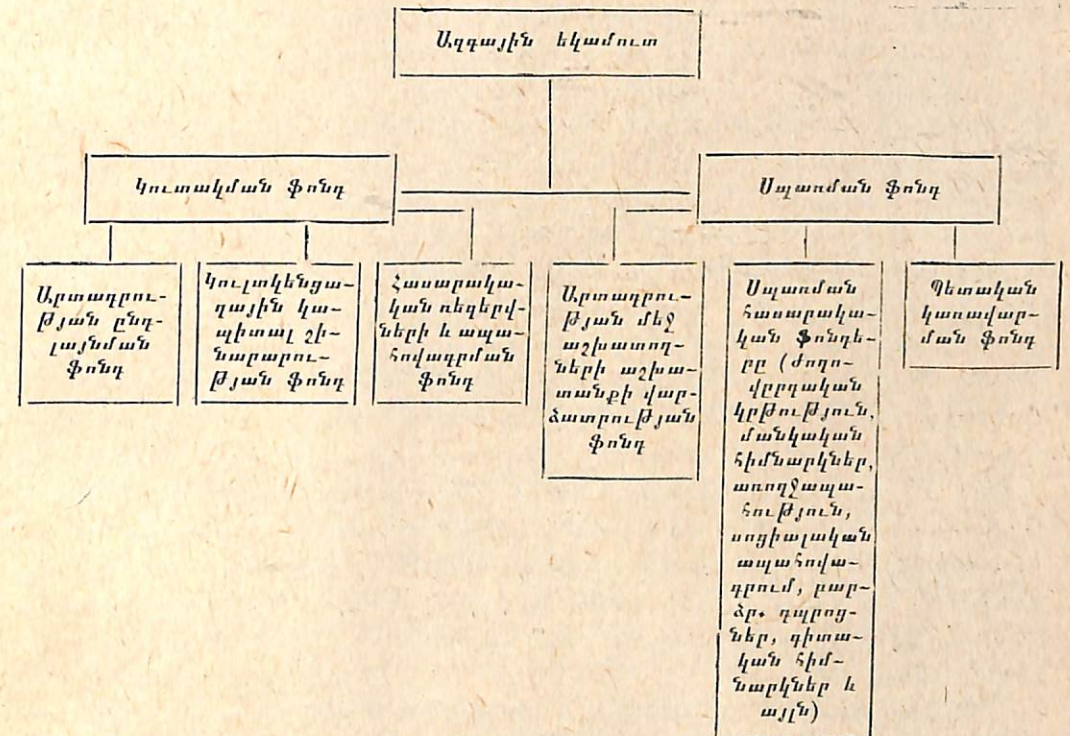 Ազգային եկամուտ
Կուտակման ֆոնդ
Սպառման ֆոնդ
Արտադրու-
թյան ընդ-
լայնման
ֆոնդ
Կուլտկենցա-
ղային կա-
պիտալ շի-
նարարու-
թյան ֆոնդ
Հասարակա-
կան ռեզերվ-
ների և ապա-
հովագրման
ֆոնդ
Արտադրու-
թյան մեջ
աշխատող-
ների աշխա-
տանքի վար-
ձատրության
ֆոնդ
Սպառման
հասարակա-
կան ֆոնդե-
րը (ժողո-
վըրդական
կրթություն,
մանկական
հիմնարկներ,
առողջապա-
հություն,
սոցիալական
ապահովա-
գրում, բար-
ձր. դպրոց-
ներ, գիտա-
կան հիմ-
նարկներ և
այլն)
Պետական
կառավար-
ման ֆոնդ